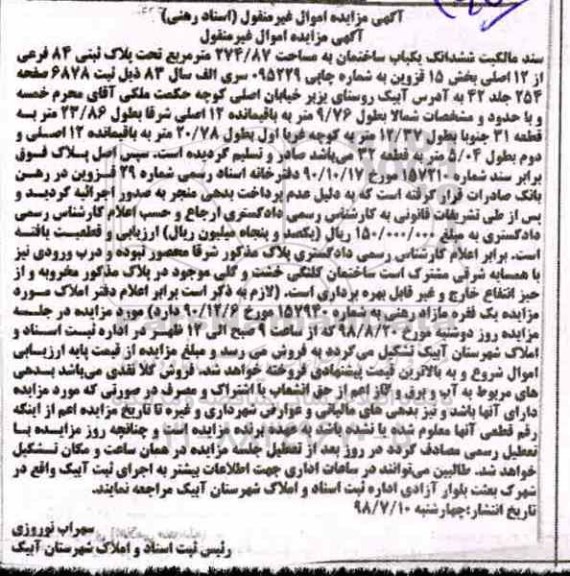 آگهی مزایده اموال غیرمنقول (اسناد رهنی)
آگهی مزایده اموال غیرمنقول
سند مالکیت ششدانگ یکباب ساختمان به مساحت ۲۷۴/۸۷ مترمربع تحت پلاک ثبتی ۸۴ فرعی
از ۱۲ اصلی بخش ۱۵ قزوین به شماره چاپی ۰۹۵۲۲۹ سری الف سال ۸۳ ذیل ثبت ۶۸۷۸ صفحه
۲۵۴ جلد ۴۲ به آدرس آبیک روستای یزبر خیابان اصلی کوچه حکمت ملکی آقای محرم خمسه
و با حدود و مشخصات شمالا بطول ۹/۷۶ متر به باقیمانده ۱۲ اصلی شرقا بطول ۲۳/۸۶ متر به
قطعه ۳۱ جنوبا بطول ۱۲/۳۷ متر به کوچه غربا اول بطول ۲۰/۷۸ متر به باقیمانده ۱۲ اصلی و
دوم بطول ۵/۰۴ متر به قطعه ۳۲ می‌باشد صادر و تسلیم گردیده است. سپس اصل پلاک فوق
برابر سند شماره ۱۵۷۲۱۰ مورخ ۹۰/۱۰/۱۷ دفترخانه اسناد رسمی شماره ۲۹ قزوین در رهن
بانک صادرات قرار گرفته است که به دلیل عدم پرداخت بدهی منجر به صدور اجرائیه گردید و
پس از طی تشریفات قانونی به کارشناس رسمی دادگستری ارجاع و حسب اعلام کارشناس رسمی
دادگستری به مبلغ ۱۵۰/۰۰۰/۰۰۰ ریال (یکصد و پنجاه میلیون ریال) ارزیابی و قطعیت یافته
است. برابر اعلام کارشناس رسمی دادگستری پلاک مذکور شرقا محصور نبوده و درب ورودی نیز
با همسایه شرقی مشترک است ساختمان کلنگی خشت و گلی موجود در پلاک مذکور مخروبه و از
حیز انتفاع خارج و غیر قابل بهره برداری است. (لازم به ذکر است برابر اعلام دفتر املاک مورد
مزایده یک فقره مازاد رهنی به شماره ۱۵۷۹۴۰ مورخ ۹۰/۱۲/۶ دارد) مورد مزایده در جلسه
مزایده روز دوشنبه مورخ ۹۸/۸/۲۰ که از ساعت ۹ صبح الی ۱۲ ظهر در اداره ثبت اسناد و
املاک شهرستان آبیک تشکیل می‌گردد به فروش می رسد و مبلغ مزایده از قیمت پایه ارزیابی
اموال شروع و به بالاترین قیمت پیشنهادی فروخته خواهد شد. فروش کلا نقدی می‌باشد بدهی
های مربوط به آب و برق و گاز اعم از حق انشعاب یا اشتراک و مصرف در صورتی که مورد مزایده
دارای آنها باشد و نیز بدهی های مالیاتی و عوارض شهرداری و غیره تا تاریخ مزایده اعم از اینکه
رقم قطعی آنها معلوم شده یا نشده باشد به عهده برنده مزایده است و چنانچه روز مزایده با
تعطیل رسمی مصادف گردد در روز بعد از تعطیل جلسه مزایده در همان ساعت و مکان تشکیل
خواهد شد. طالبین می‌توانند در ساعات اداری جهت اطلاعات بیشتر به اجرای ثبت آبیک واقع در
شهرک بعثت بلوار آزادی اداره ثبت اسناد و املاک شهرستان آبیک مراجعه نمایند.
تاریخ انتشار:چهارشنبه ۹۸/۷/۱۰
سهراب نوروزی
رئیس ثبت اسناد و املاک شهرستان آبیک